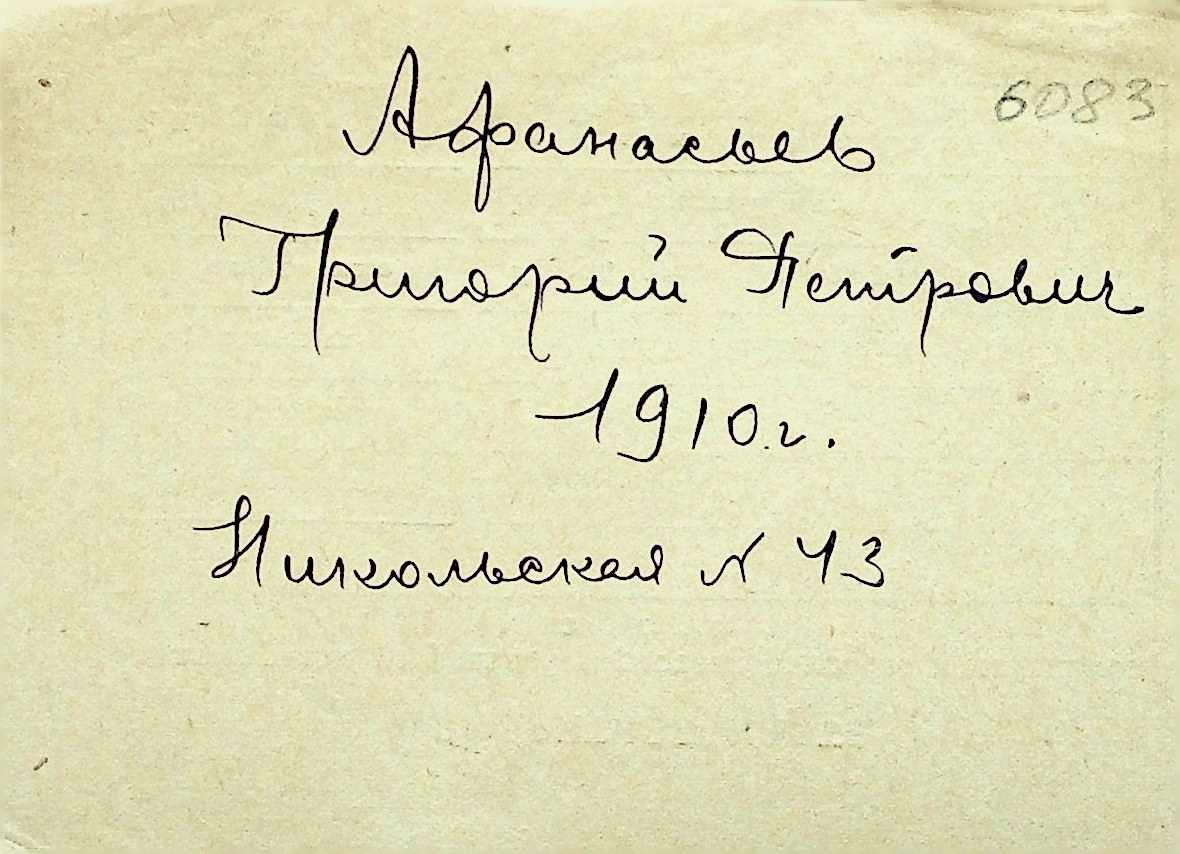 6083
Афанасьев
Григорий Петрович
1910 г.
Никольская N 43